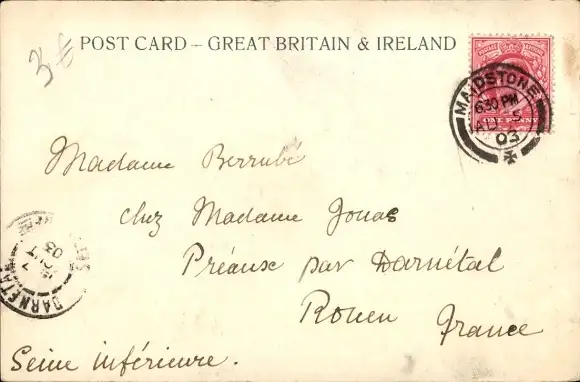 3 €
POST CARD – GREAT BRITAIN & IRELAND
POSTAGE REVENUE
ONE PENNY
MAIDSTONE
6.30 PM
AU
03
Madame Berrubé
chez Madame Jouas
Préaux par Darnétal
Rouen France
Seine inférieure.
DARNETAL
7
03